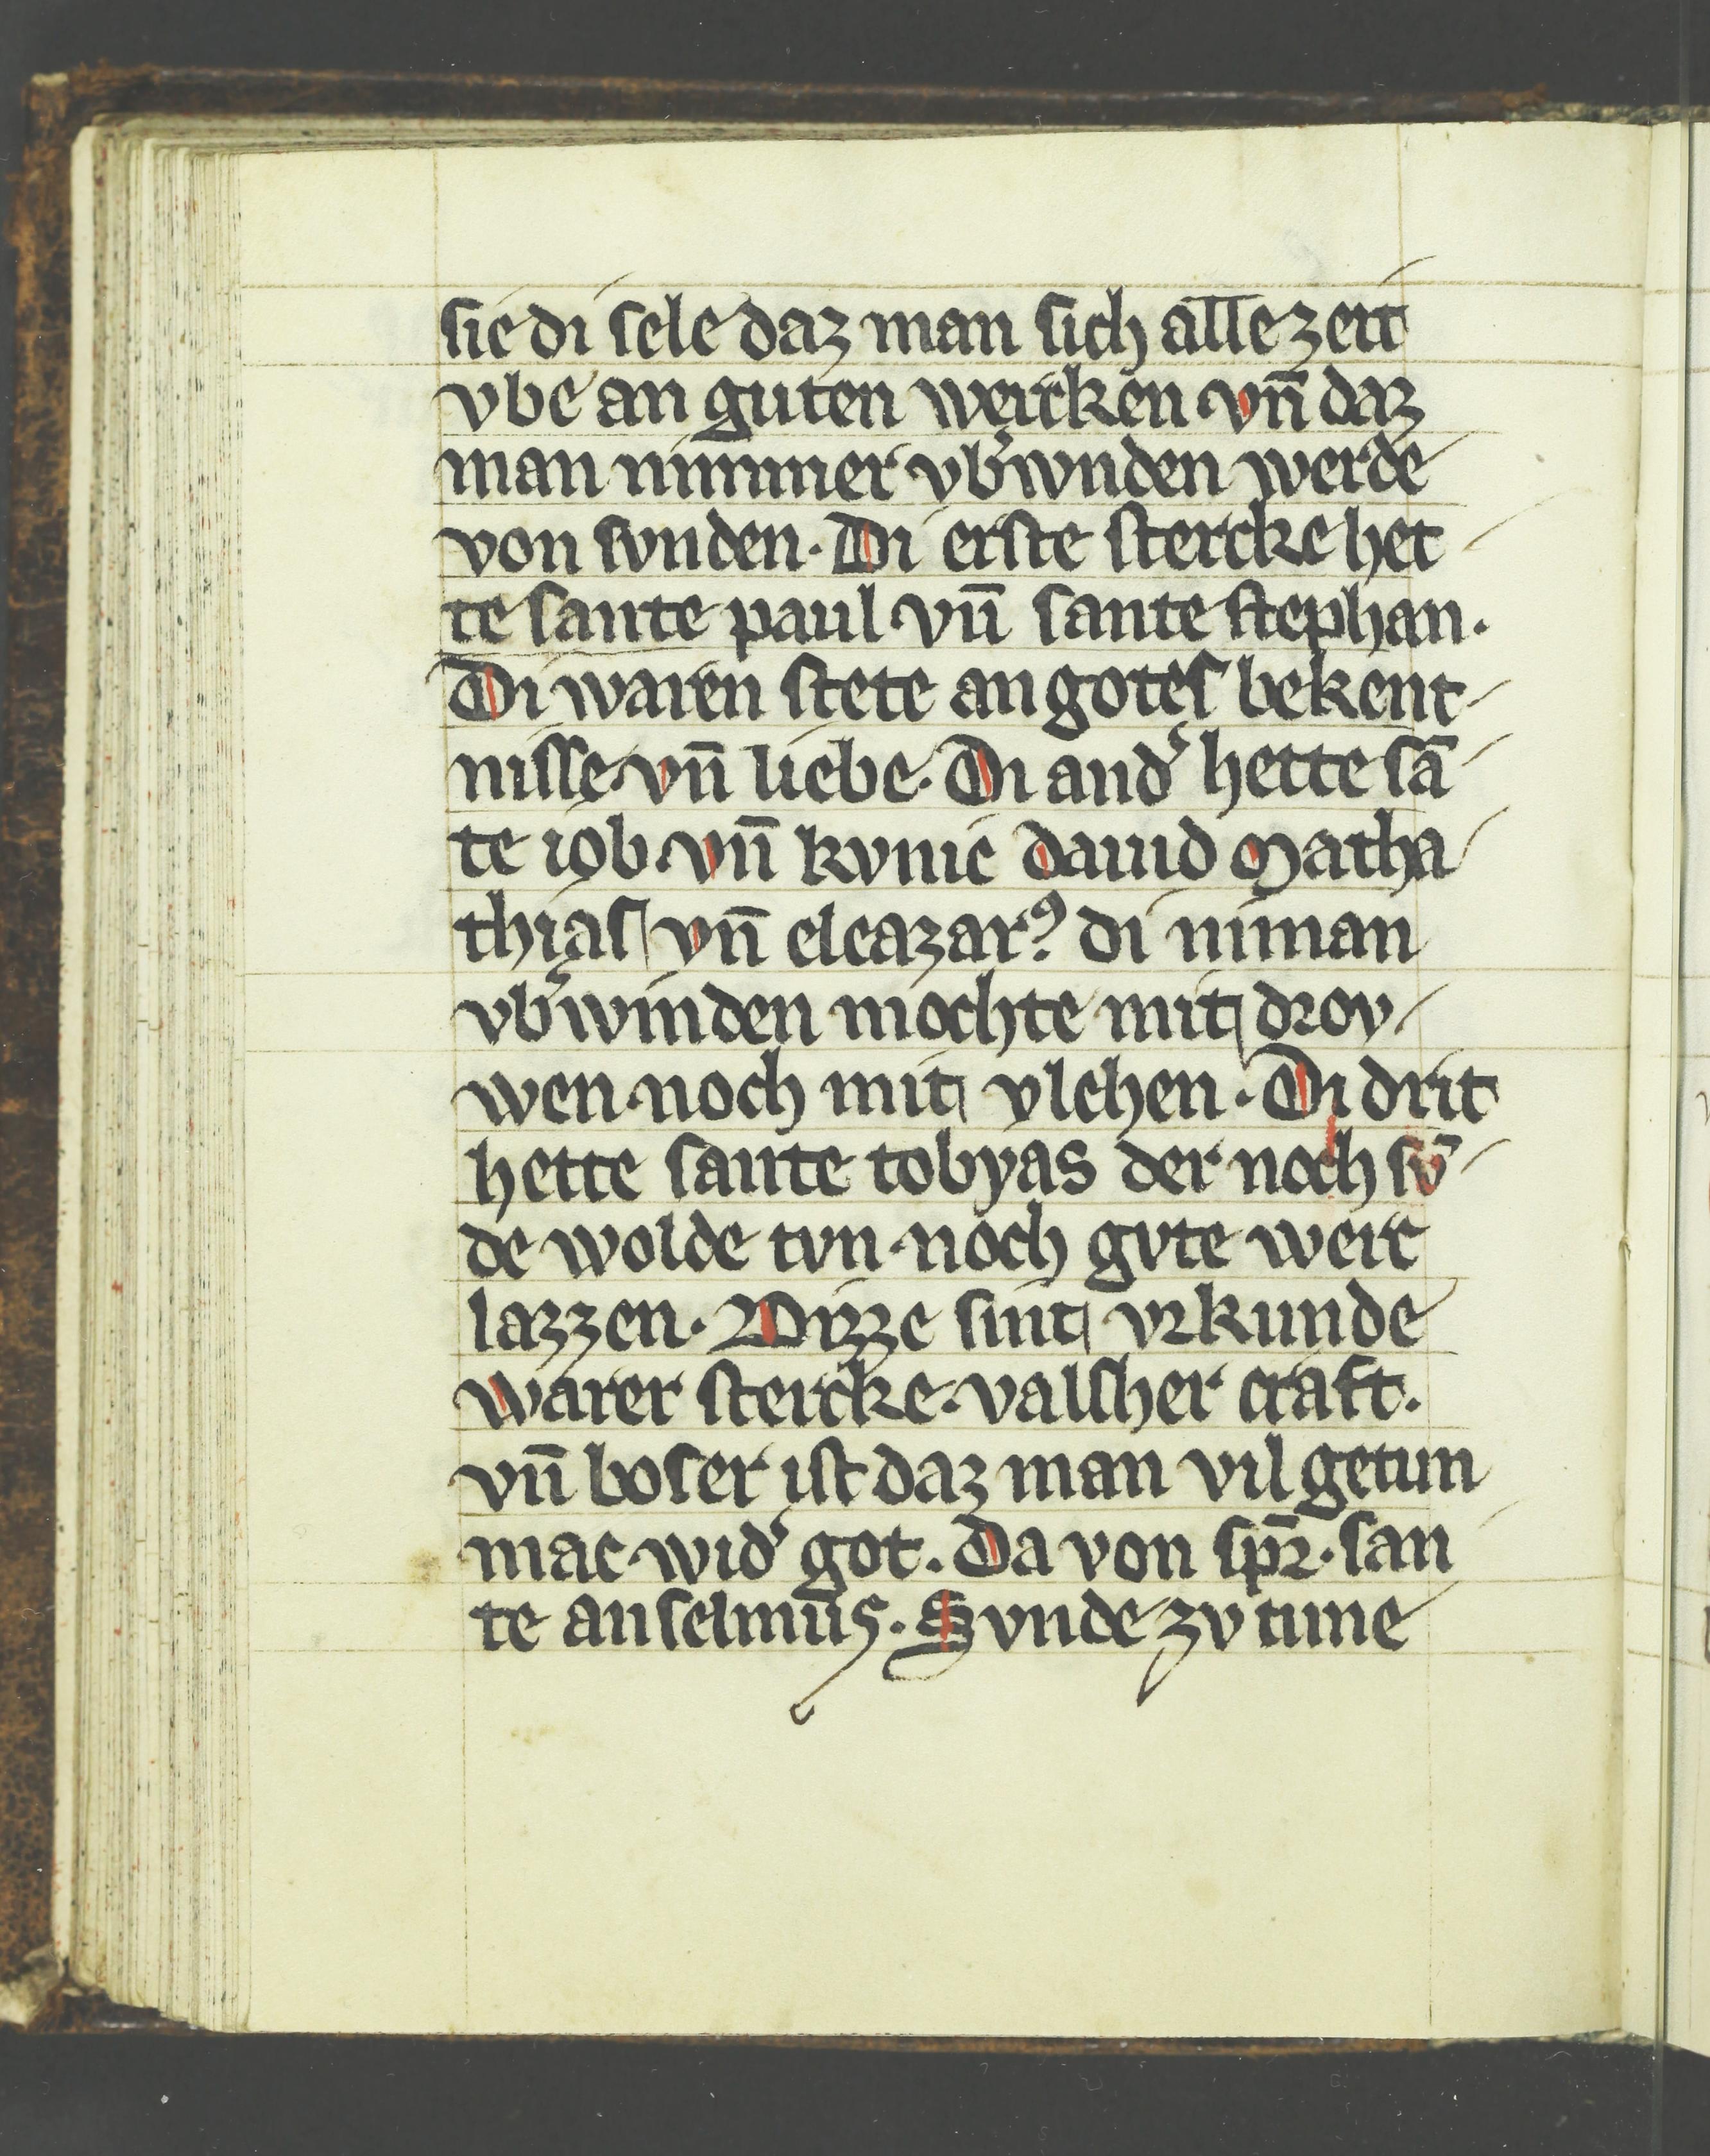 sie di sele daz man sich alle zeit
vbe an guten wercken vn̄ daz
man nimmer vb᷑wnden werde
von svnden. Di erste stercke het
te sante paul vn̄ sante stephan.
Di waren stete an gotes bekent
nisse. vn̄ liebe. Di and᷑ hette sā
te iob. vn̄ kvnic dauid Matha
thias vn̄ eleazarꝰ di niman
vb᷑winden mochte mit drov
wen. noch mit vlehen. Di drit
hette sante tobyas der noch sv̄
de wolde tvn. noch gvte werc
lazzen. Dizze sint vrkunde
warer stercke. valscher craft.
vn̄ boser ist daz man vil getun
mac wid᷑ got. Da von spꝛ̄. san
te anselmūs. Svnde zv tune